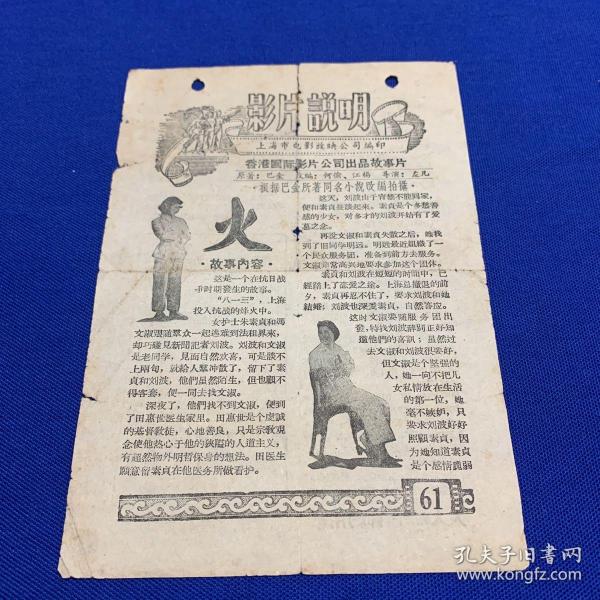 影片説明
上海市电影放映公司编印
香港國际影片公司出品故事片
原著：巴金 改編：何愉、江楊 导演：左几
·根据巴金所著同名小説改編拍攝·
火
·故事內容·
这是一个在抗日战
争时期發生的故事。
“八一三”，上海
投入抗战的烽火中。
女护士朱素貞和馮
文淑跟随羣众一起逃难到法租界来，
却巧碰見新聞記者刘波。刘波和文淑
是老同学，見面自然欢喜，可是談不
上兩句，就給人羣冲散了，留下了素
貞和刘波，他們虽然陌生，但也顧不
得客套，便一同去找文淑。
深夜了，他們找不到文淑，便到
了田惠世医生家里。田惠世是个虔誠
的基督教徒，心地善良，只是宗教观
念使他热心于他的狹隘的人道主义，
有超然物外明哲保身的想法。田医生
願意留素貞在他医务所做看护。
这天，刘波由于宵禁不能回家，
便和素貞登談起来。素貞是个多愁善
感的少女，对多才的刘波开始有了爱
慕之念。
再說文淑和素貞失散之后，她找
到了旧同学明远。明远最近組織了一
个民众服务团，准备到前方去服务。
文淑非常高兴地要求参加这个团体。
素貞和刘波在短短的时間中，已
經踏上了恋爱之途。上海总撤退的前
夕，素貞再忍不住了，要求刘波和她
結婚；刘波也深爱素貞，自然答应。
这时文淑要随服务团出
發，特找刘波辞别正好知
道他們的喜訊；虽然过
去文淑和刘波很要好，
但文淑是个坚强的
人，她一向不把儿
女私情放在生活
的第一位，她
毫不嫉妒，只
要求刘波好好
照顧素貞，因
为她知道素貞
是个感情脆弱
61
孔夫子旧书网
www.kongfz.com